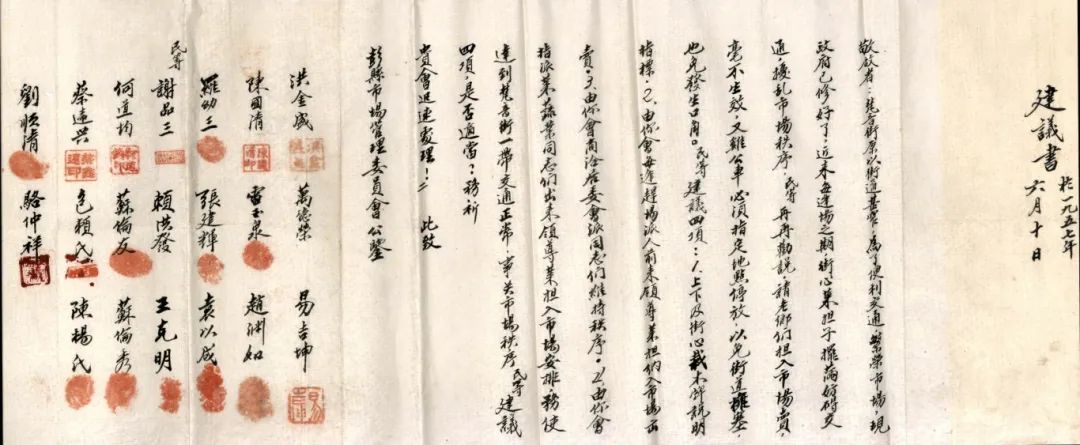 建議書
於一九五七年
六月十日
敬啟者：梵音街原以街道甚窄，為了便利交通，繁榮市場，現
政府已修好了，近來每逢場之期，街心菜担子擺滿，妨碍交
通，擾乱市場秩序，民等再再勸說，請老鄉們担入市場賣，
毫不生效，又雞公車必須指定地點停放，以免街道擁塞，
也免發生口角。民等建議四項：1.上下及街心栽木牌說明
指標。2.由你會每逢趕場派人前来領導菜担們入市場出
賣。3.由你會商洽居委會派同志們維持秩序。4.由你會
指派菜蔬業同志們出来領導菜担入市場安排，務使
達到梵音街一帶交通正常，事关市場秩序，民等建議
四項，是否適當？務祈
貴會迅速處理！！ 此致
彭縣市場管理委員會公鑒
洪金盛 萬德榮 易吉坤
陳國清 雷玉泉 趙渊如
羅幼三 張建輝 袁以成
民等 謝品三 賴洪發 王克明
何道均 蘇倫友 蘇倫秀
蔡遠兴 色賴氏 陳楊氏
劉順清 駱仲祥